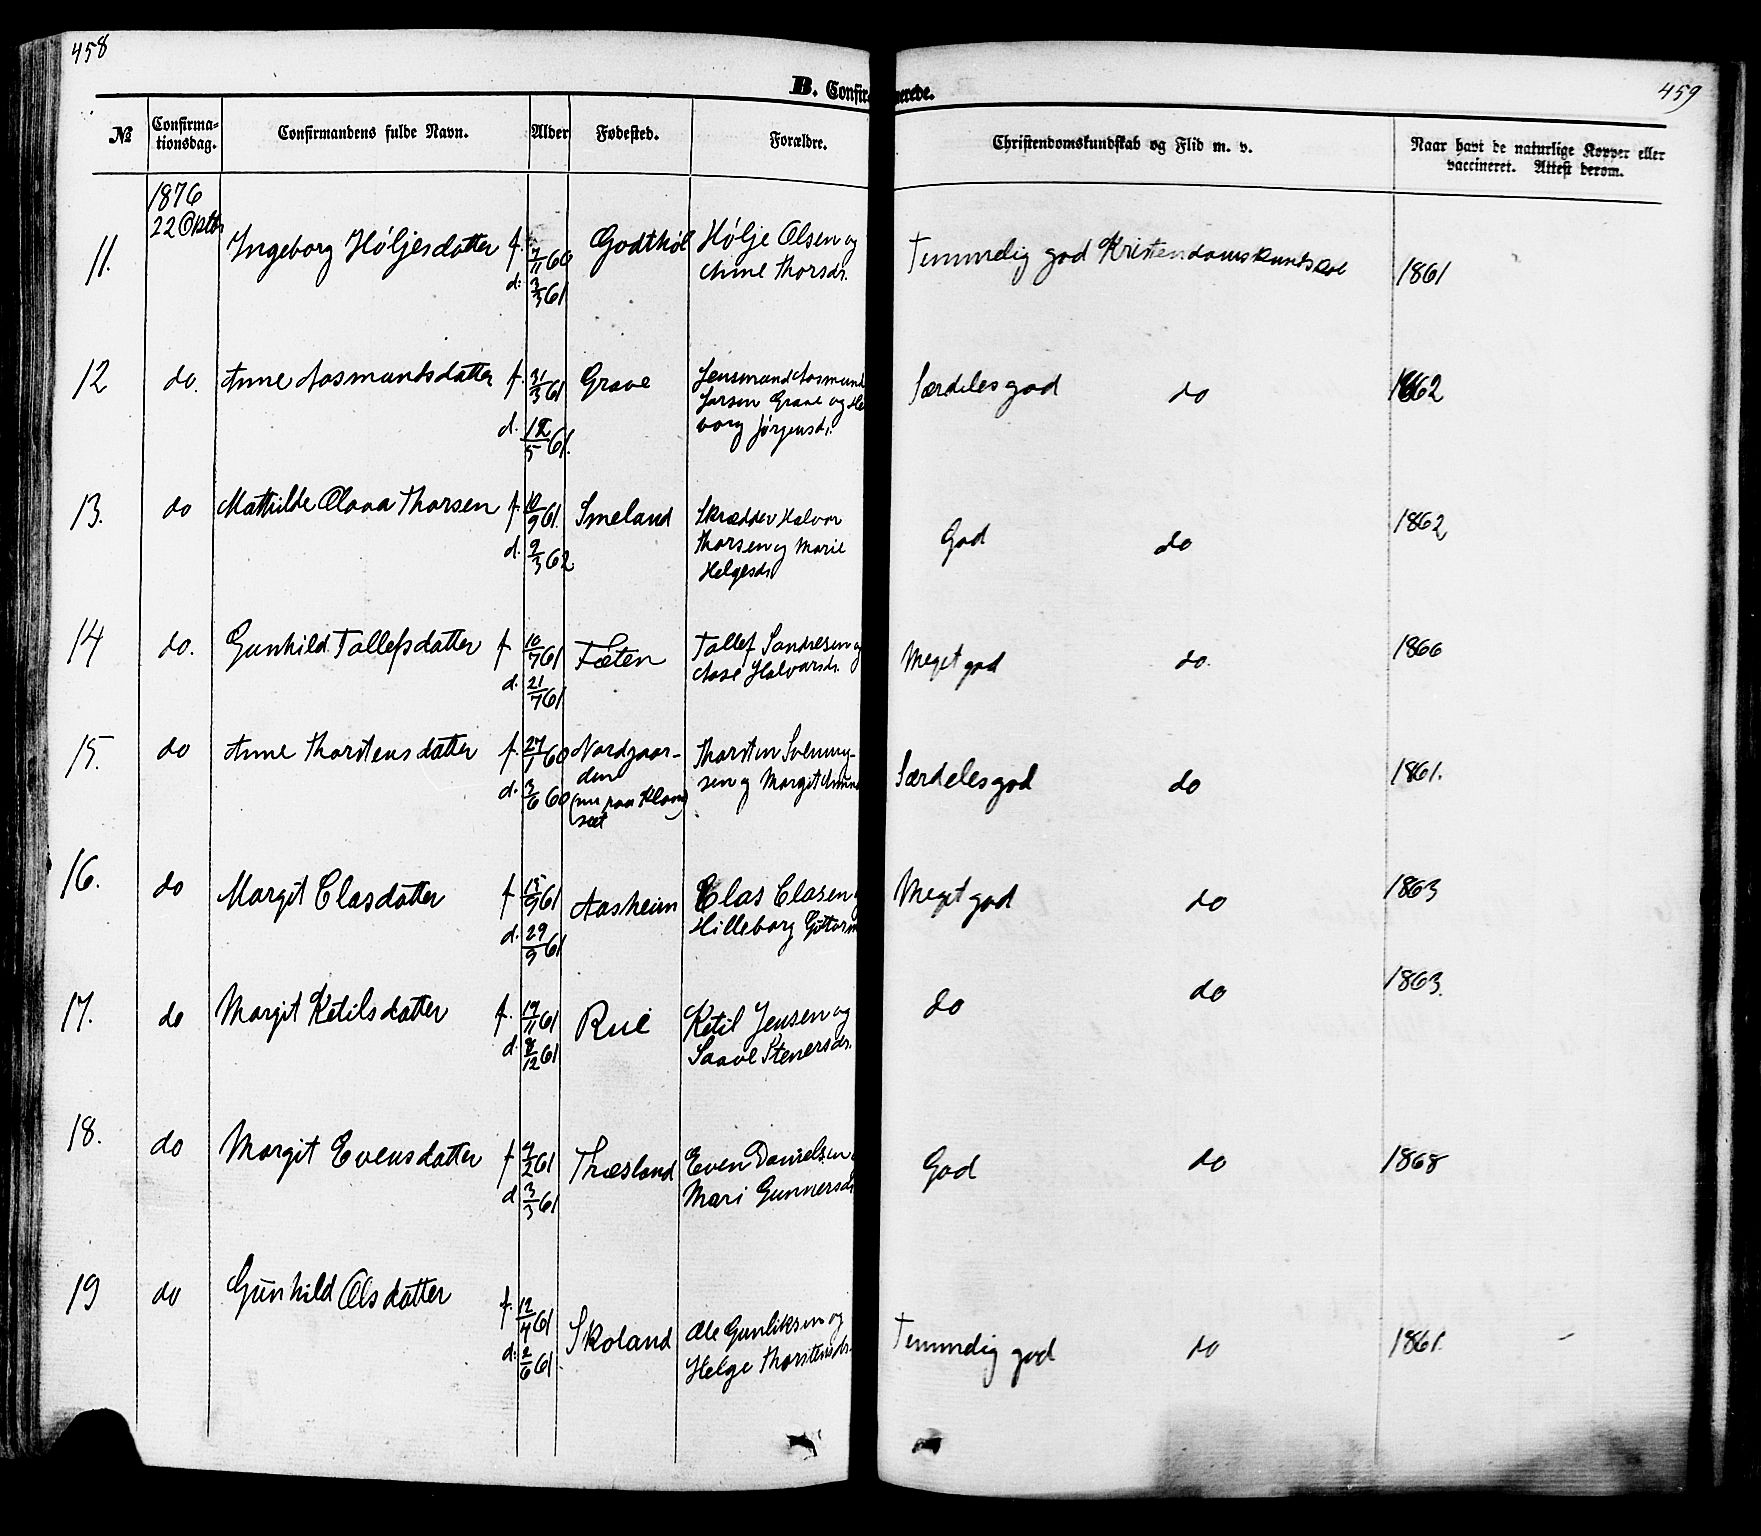 458
459
B. Confirmerede.
№
Confirma-
tionsdag.
Confirmandens fulde Navn.
Alder
Fødested.
Forældre.
Christendomskundskab og Flid m. v.
Naar havt de naturlige Kopper eller
vaccineret. Attest derom.
1876
22 Oktbr
11. Ingeborg Høljesdatter f. 7/11 60 Godthol Hølje Olsen og Temmelig god Kristendomskundskab 1861
d: 3/3 61 Anne Thorsdr.
12 do. Anne Aasmundsdatter f. 31/3 61 Grave Aasmund Særdeles god do 1862
Grave og
d. 12/5 61. borg Jørgensdr.
13. do Mathilde Olava Thorsen f. 10/9 61. Smeland Skrædder Halvor God do 1862
d. 9/3 62 Thorsen og Marie
Helgesdr
14 do. Gunhild Tallefsdatter f 10/7 61 Fæten Tallef Sandresen og Meget god do. 1866
d. 21/7 61 Aase Halvorsdr.
15. do Anne Thorstensdatter f. 27/1 60 Nordgaar- Thorsten Svenung- Særdeles god do 1861.
dene sen og Margit
d. 3/6 60 (nu paa
16. do Margit Clasdatter f 15/9 61 Aasheim Clas Clasen Meget god do 1863
d. 29/9 61 Hilleborg
17. do Margit Ketilsdatter f. 19/11 61 Rue Ketil Jensen og do do 1863.
d. 8/12 61 Saave Stenersdr.
18. do Margit Evensdatter f 4/2 61 Træsland Even Danielsen God do 1868
d 3/3 61 Mari Gunnersdr
19 do Gunhild Olsdatter f. 12/4 61 Skoland Ole Gunliksen og Temmelig god do 1861.
d: 2/6 61. Helge Thorstensdr.